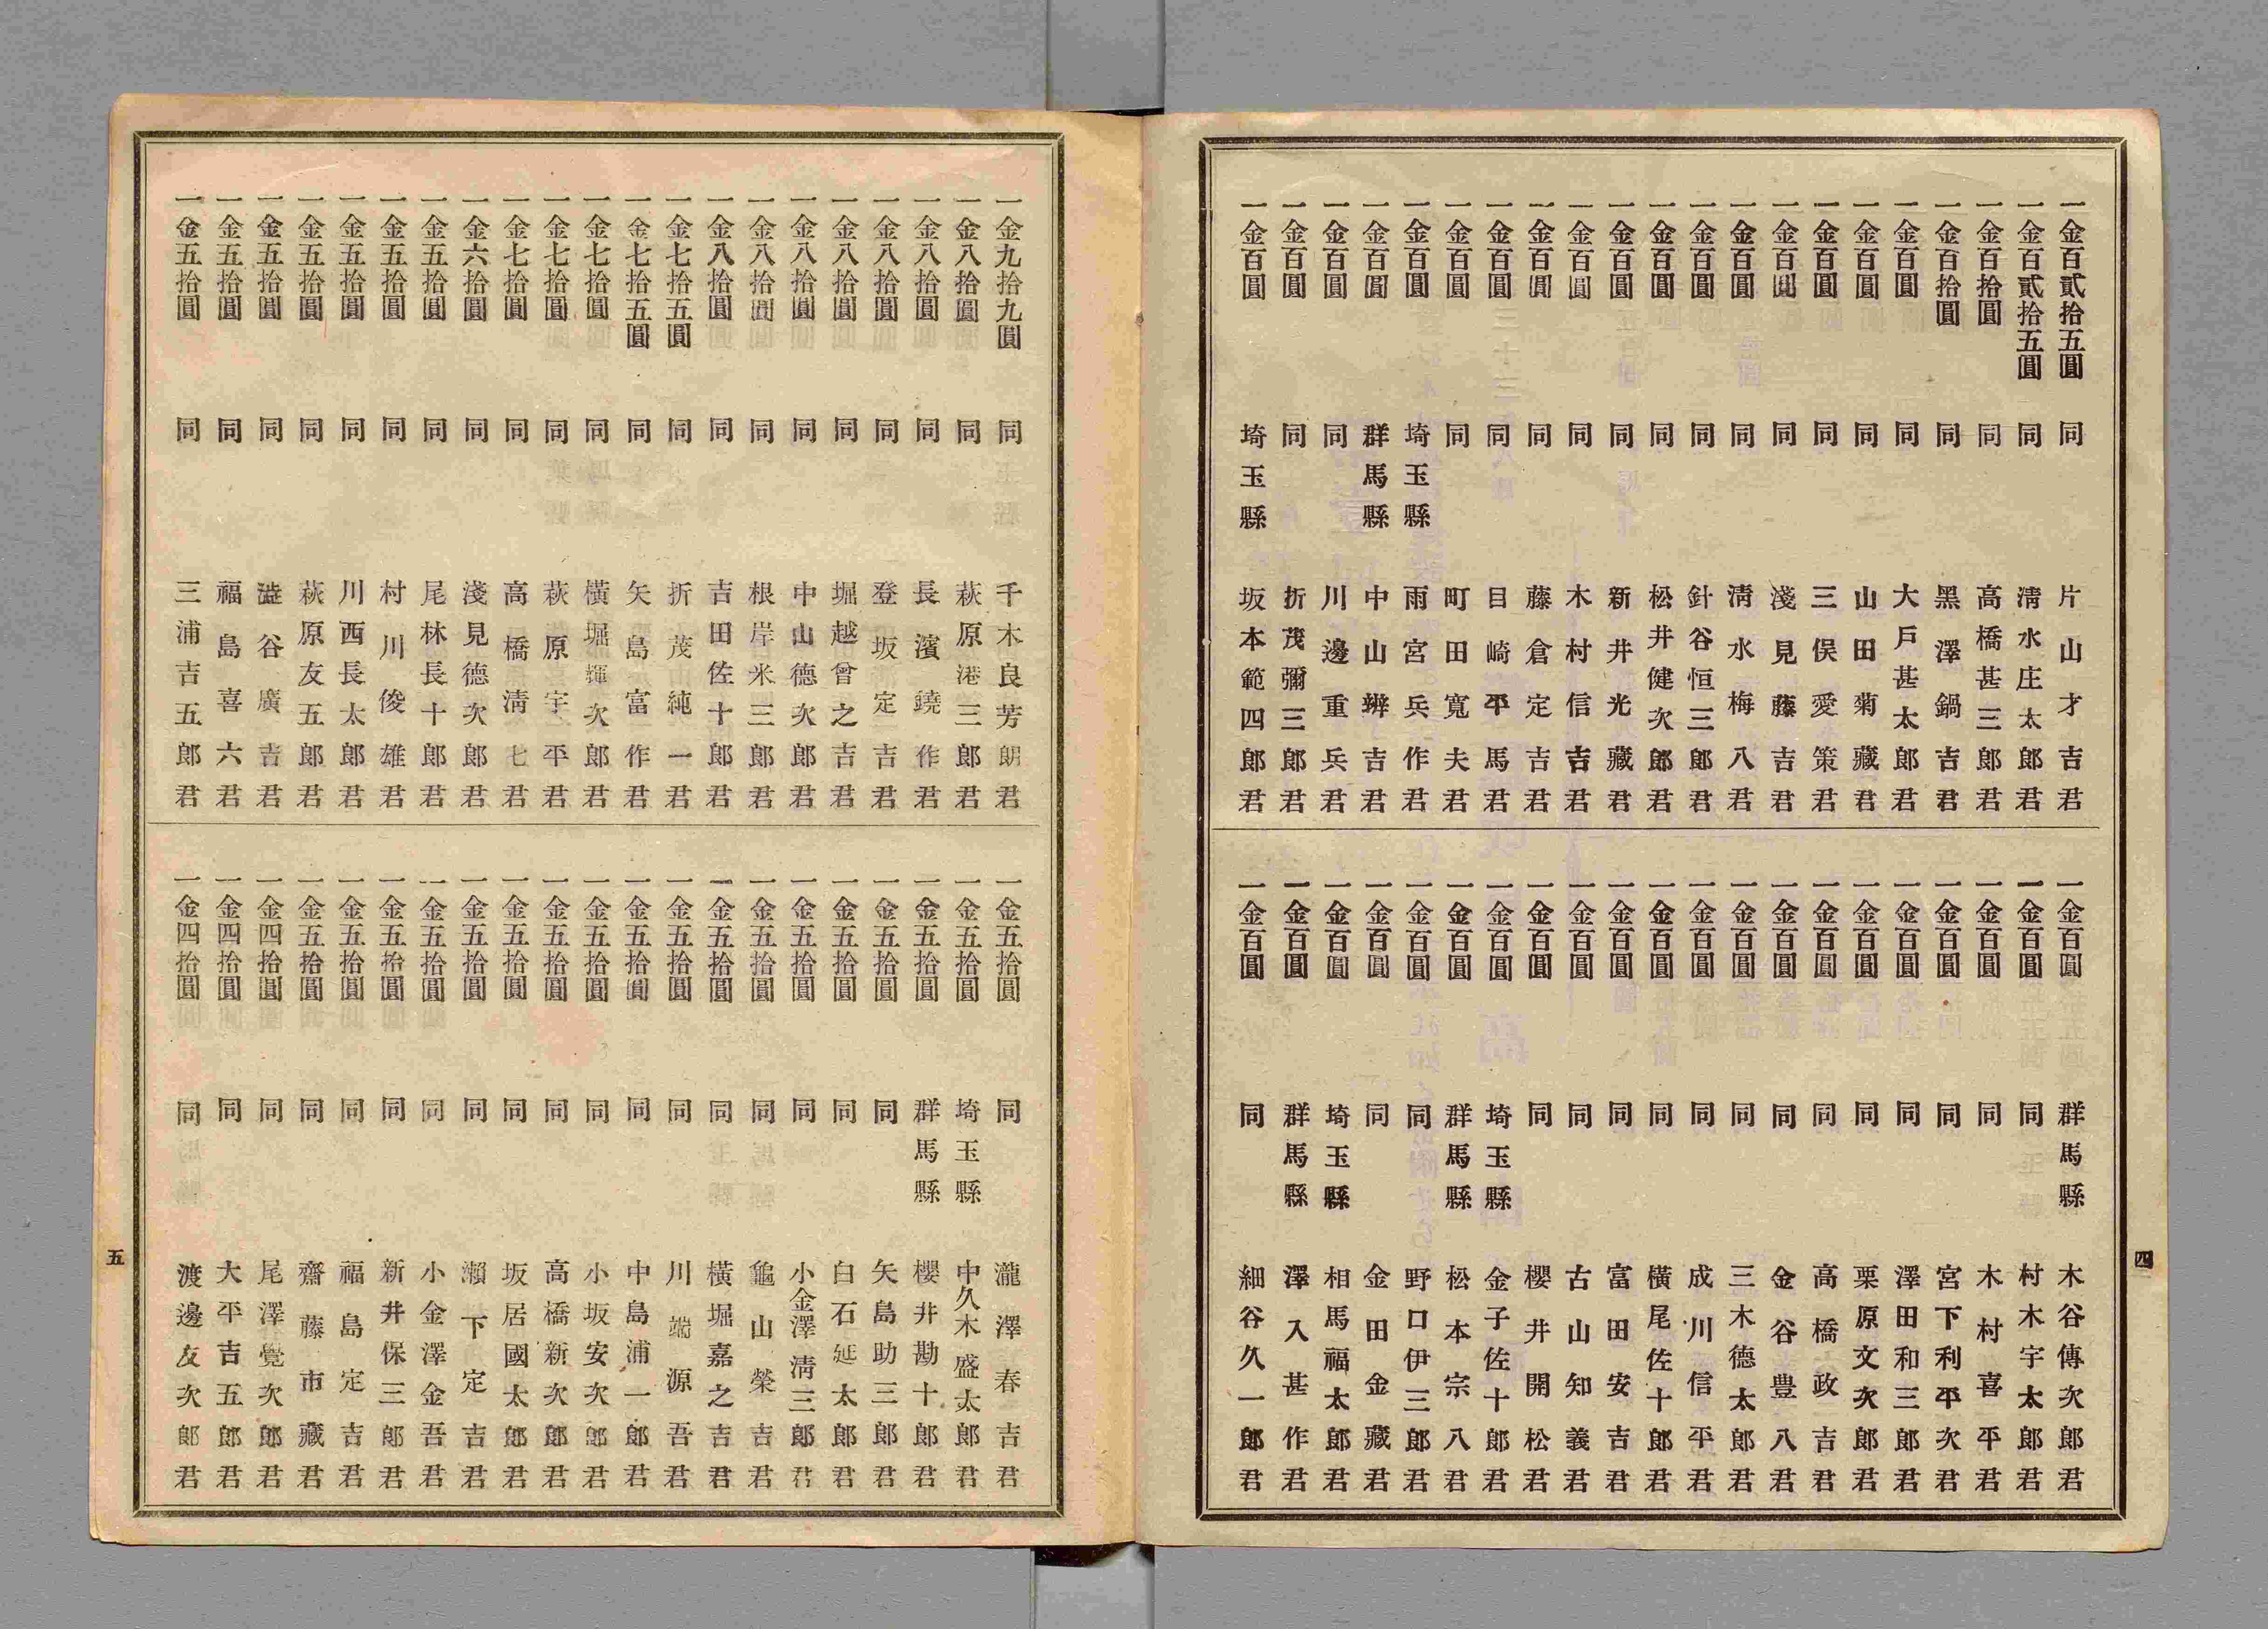 四
一金百貳拾五圓 同 片山才吉君
一金百貳拾五圓 同 淸水庄太郎君
一金百拾圓 同 高橋甚三郎君
一金百拾圓 同 黑澤鍋吉君
一金百圓 同 大戶甚太郎君
一金百圓 同 山田菊藏君
一金百圓 同 三俣愛策君
一金百圓 同 淺見藤吉君
一金百圓 同 淸水梅八君
一金百圓 同 針谷恒三郎君
一金百圓 同 松井健次郎君
一金百圓 同 新井光藏君
一金百圓 同 木村信吉君
一金百圓 同 藤倉定吉君
一金百圓 同 目崎平馬君
一金百圓 同 町田寬夫君
一金百圓 埼玉縣 雨宮兵作君
一金百圓 群馬縣 中山辨吉君
一金百圓 同 川邊重兵君
一金百圓 同 折茂彌三郎君
一金百圓 埼玉縣 坂本範四郎君
一金百圓 群馬縣 木谷傳次郎君
一金百圓 同 村木宇太郎君
一金百圓 同 木村喜平君
一金百圓 同 宮下利平次君
一金百圓 同 澤田和三郎君
一金百圓 同 栗原文次郎君
一金百圓 同 高橋政吉君
一金百圓 同 金谷豊八君
一金百圓 同 三木德太郎君
一金百圓 同 成川信平君
一金百圓 同 橫尾佐十郎君
一金百圓 同 富田安吉君
一金百圓 同 古山知義君
一金百圓 同 櫻井開松君
一金百圓 埼玉縣 金子佐十郎君
一金百圓 群馬縣 松本宗八君
一金百圓 同 野口伊三郎君
一金百圓 同 金田金藏君
一金百圓 埼玉縣 相馬福太郎君
一金百圓 群馬縣 澤入甚作君
一金百圓 同 細谷久一郎君
一金九拾九圓 同 千木良芳朗君
一金八拾圓 同 萩原港三郎君
一金八拾圓 同 長濱鐃作君
一金八拾圓 同 登坂定吉君
一金八拾圓 同 堀越曾之吉君
一金八拾圓 同 中山德次郎君
一金八拾圓 同 根岸米三郎君
一金八拾圓 同 吉田佐十郎君
一金七拾五圓 同 折茂純一君
一金七拾五圓 同 矢島富作君
一金七拾圓 同 橫堀輝次郎君
一金七拾圓 同 萩原宇平君
一金七拾圓 同 高橋淸七君
一金六拾圓 同 淺見德次郎君
一金五拾圓 同 尾林長十郎君
一金五拾圓 同 村川俊雄君
一金五拾圓 同 川西長太郎君
一金五拾圓 同 萩原友五郎君
一金五拾圓 同 澁谷廣吉君
一金五拾圓 同 福島喜六君
一金五拾圓 同 三浦吉五郎君
一金五拾圓 同 瀧澤春吉君
一金五拾圓 埼玉縣 中久木盛太郎君
一金五拾圓 群馬縣 櫻井勘十郎君
一金五拾圓 同 矢島助三郎君
一金五拾圓 同 白石延太郎君
一金五拾圓 同 小金澤淸三郎君
一金五拾圓 同 龜山榮吉君
一金五拾圓 同 橫堀嘉之吉君
一金五拾圓 同 川端源吾君
一金五拾圓 同 中島浦一郎君
一金五拾圓 同 小坂安次郎君
一金五拾圓 同 高橋新次郎君
一金五拾圓 同 坂居國太郎君
一金五拾圓 同 瀨下定吉君
一金五拾圓 同 小金澤金吾君
一金五拾圓 同 新井保三郎君
一金五拾圓 同 福島定吉君
一金五拾圓 同 齋藤市藏君
一金四拾圓 同 尾澤覺次郎君
一金四拾圓 同 大平吉五郎君
一金四拾圓 同 渡邊友次郎君
五